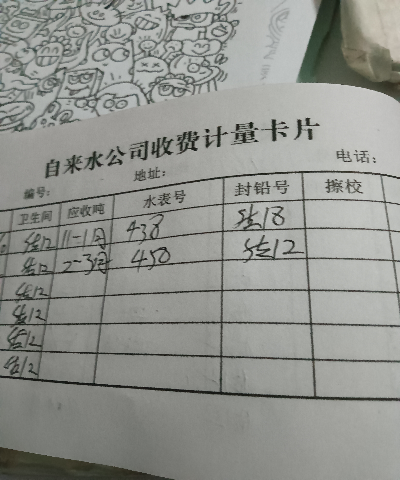 自来水公司收费计量卡片
编号: 地址: 电话:
卫生间 应收吨 水表号 封铅号 擦校
结12 11-1月 438 结18
结12 2-3月 450 结12
结12
结12
结12
结12